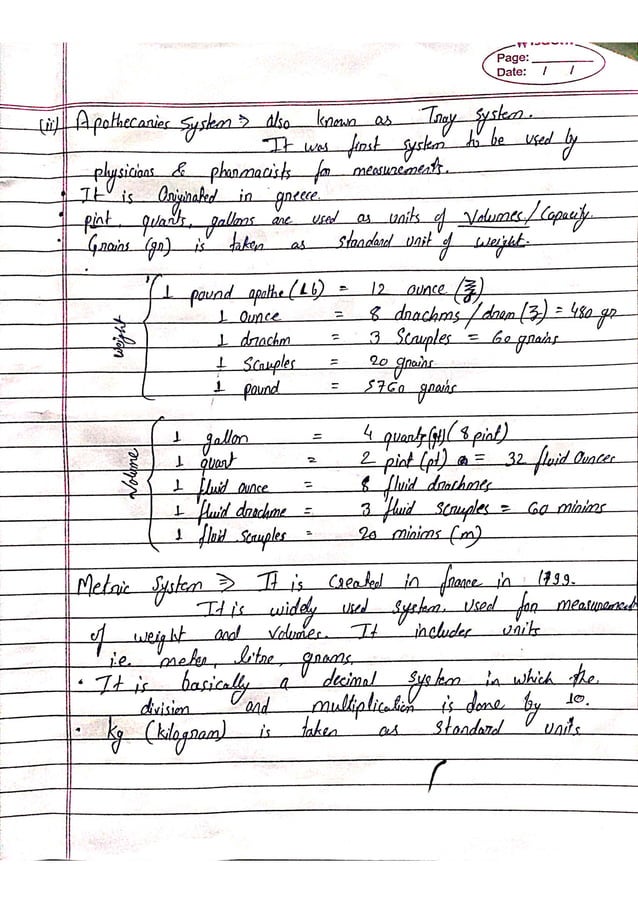 Wisdom
Page:
Date: / /
(ii) Apothecaries System ⇒ also known as Troy System.
It was first system to be used by
physicians & pharmacists for measurements.
• It is Originated in greece.
• pint, quarts, gallons are used as units of Volumes/Capacity.
• Grains (gr) is taken as standard unit of weight.
Weight
1 pound apothe (Lb) = 12 ounce (℥)
1 ounce = 8 drachms/dram (ʒ) = 480 gr
1 drachm = 3 Scruples = 60 grains
1 Scruples = 20 grains
1 pound = 5760 grains
Volume
1 gallon = 4 quarts (qt) (8 pint)
1 quart = 2 pint (pt) = 32 fluid Ounces
1 fluid ounce = 8 fluid drachmes
1 fluid drachme = 3 fluid scruples = 60 minims
1 fluid scruples = 20 minims (m)
Metric System ⇒ It is Created in france in 1799.
It is widely used system. used for measurement
of weight and volumes. It includes units
i.e. meter, litre, grams,
• It is basically a decimal system in which the
division and multiplication is done by 10.
• kg (kilogram) is taken as standard units